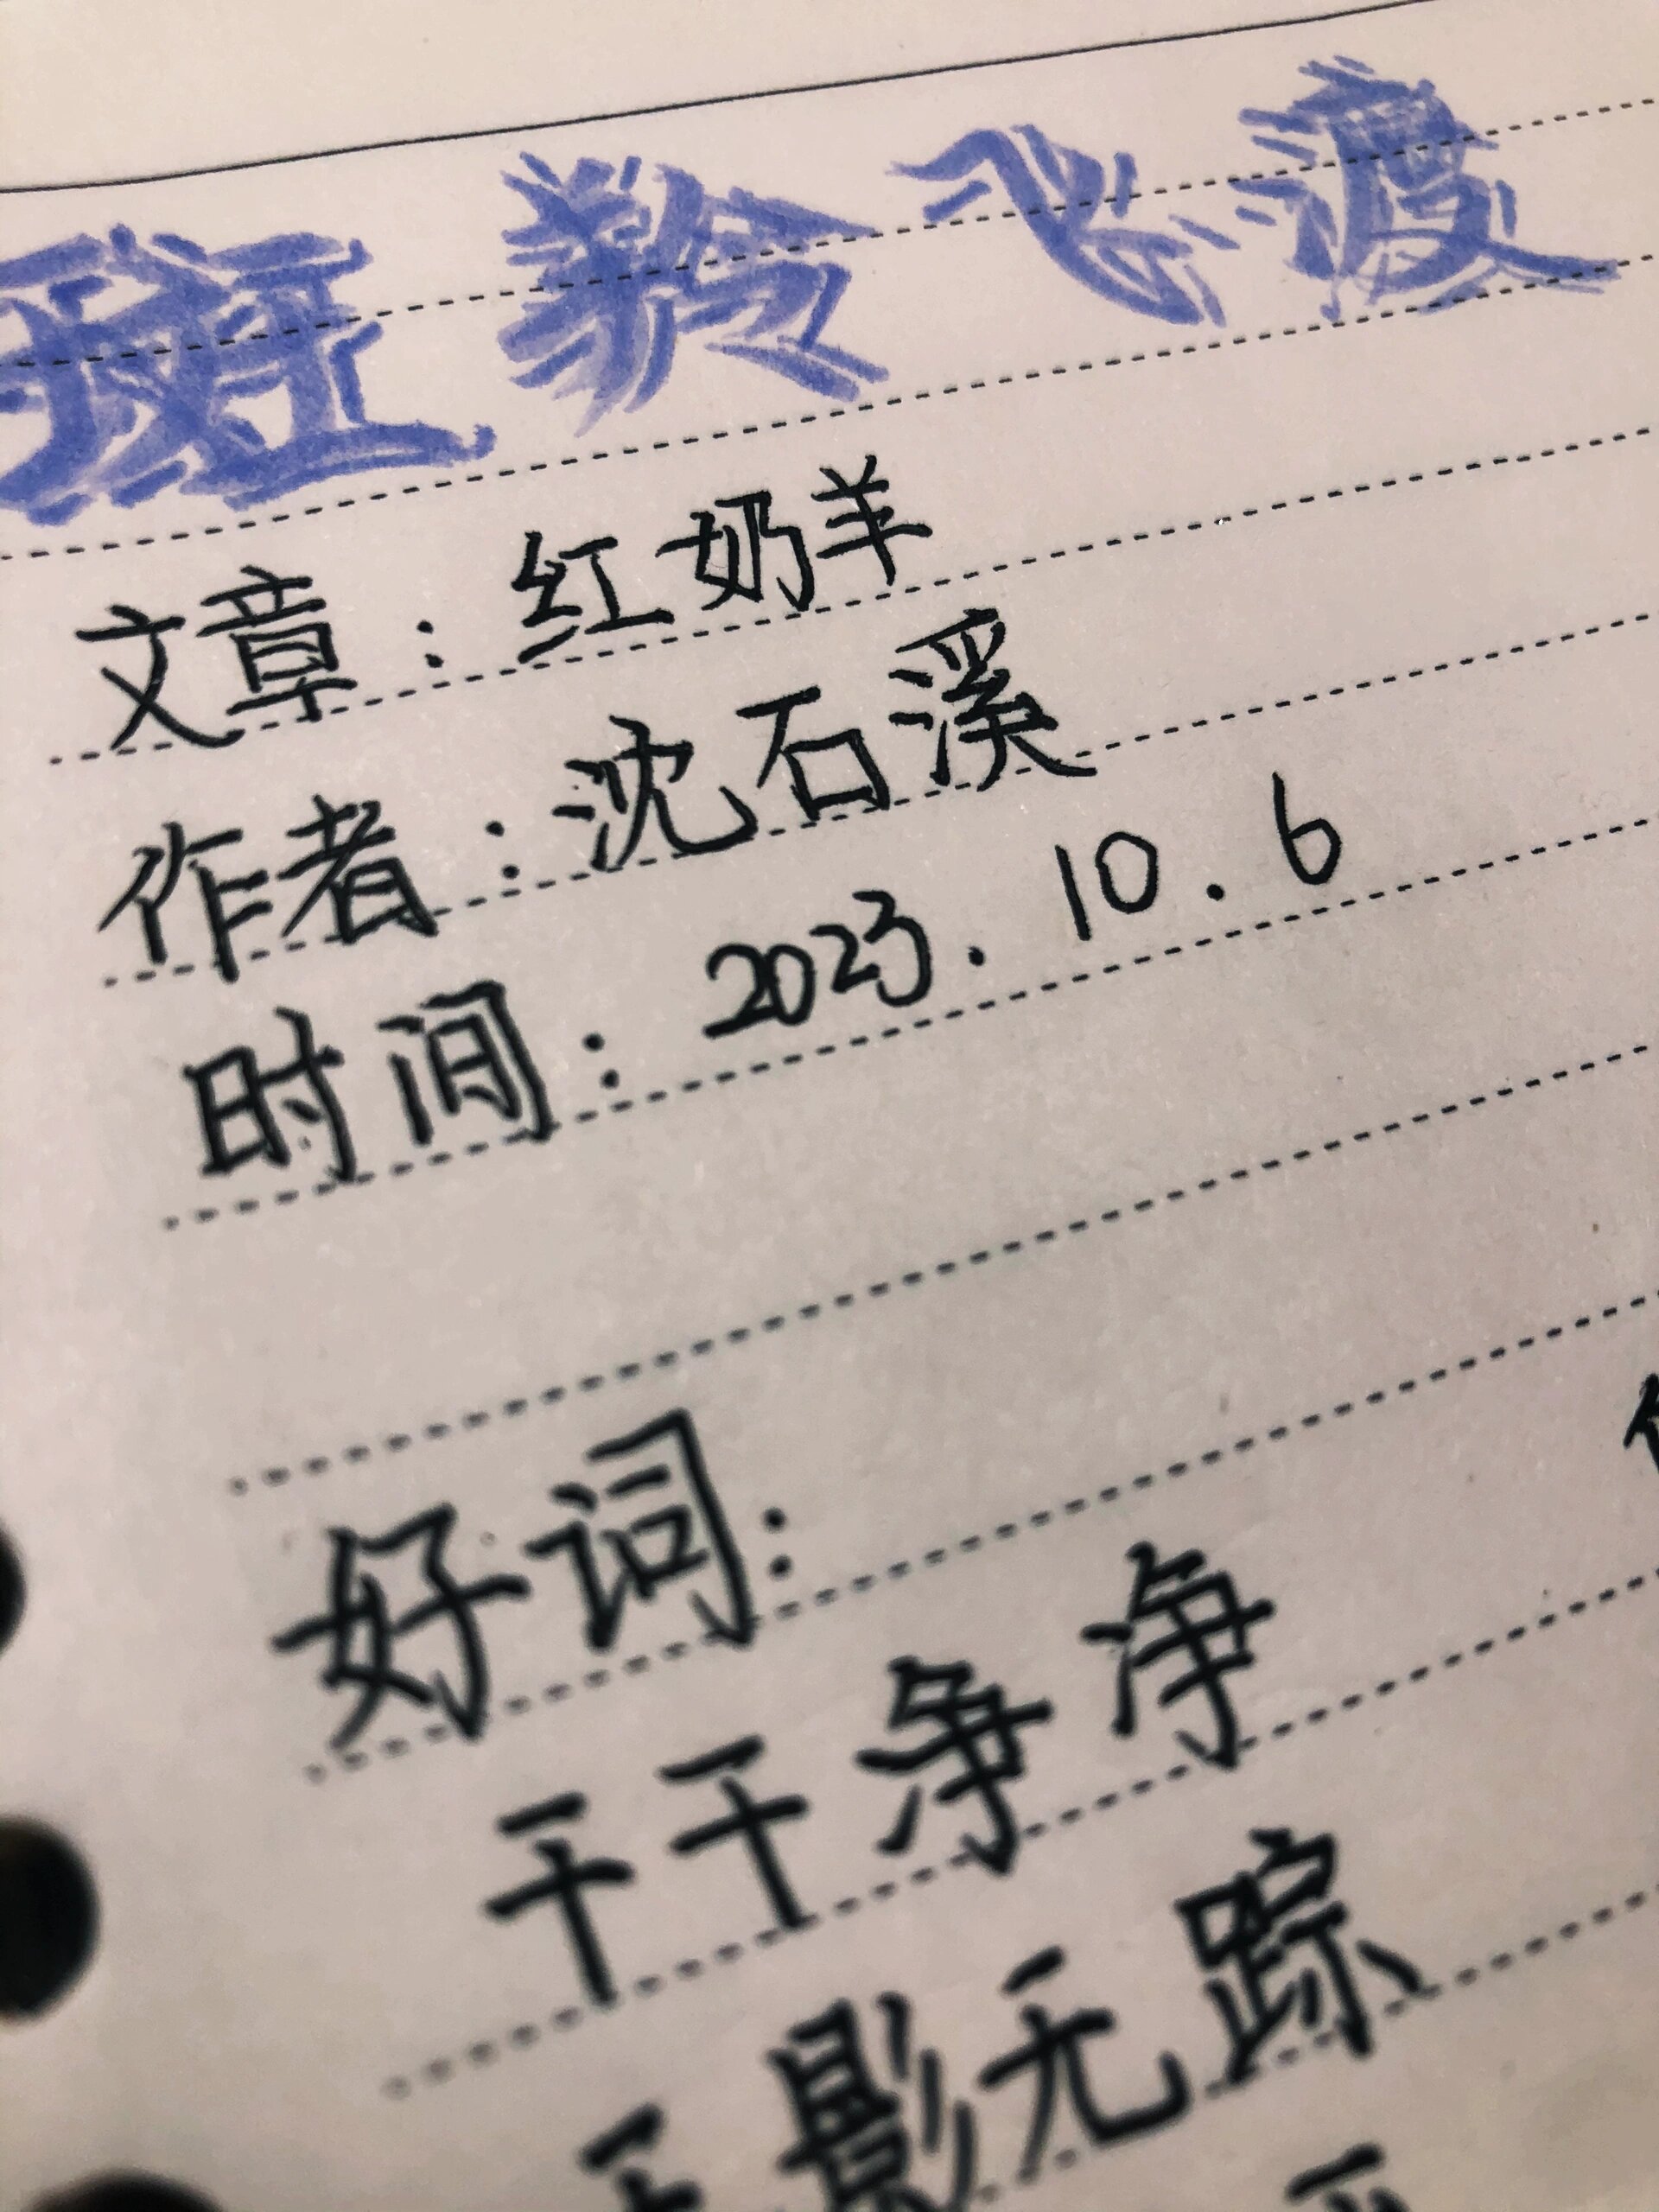 斑羚飞渡
文章：红奶羊
作者：沈石溪
时间：2023.10.6
好词：
干干净净
无影无踪